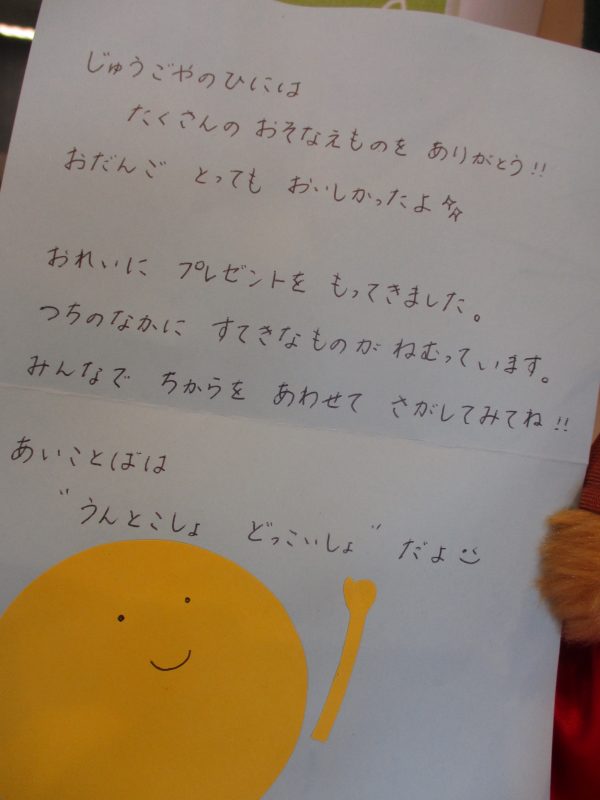 じゅうごやのひには
たくさんの おそなえものを ありがとう!!
おだんご とっても おいしかったよ
おれいに プレゼントを もってきました。
つちのなかに すてきなものが ねむっています。
みんなで ちからを あわせて さがしてみてね!!
あいことばは
"うんとこしょ どっこいしょ" だよ